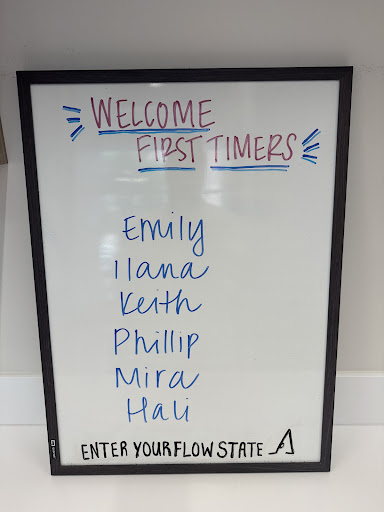 WELCOME
FIRST TIMERS
Emily
Ilana
Keith
Phillip
Mira
Hali
ENTER YOUR FLOW STATE